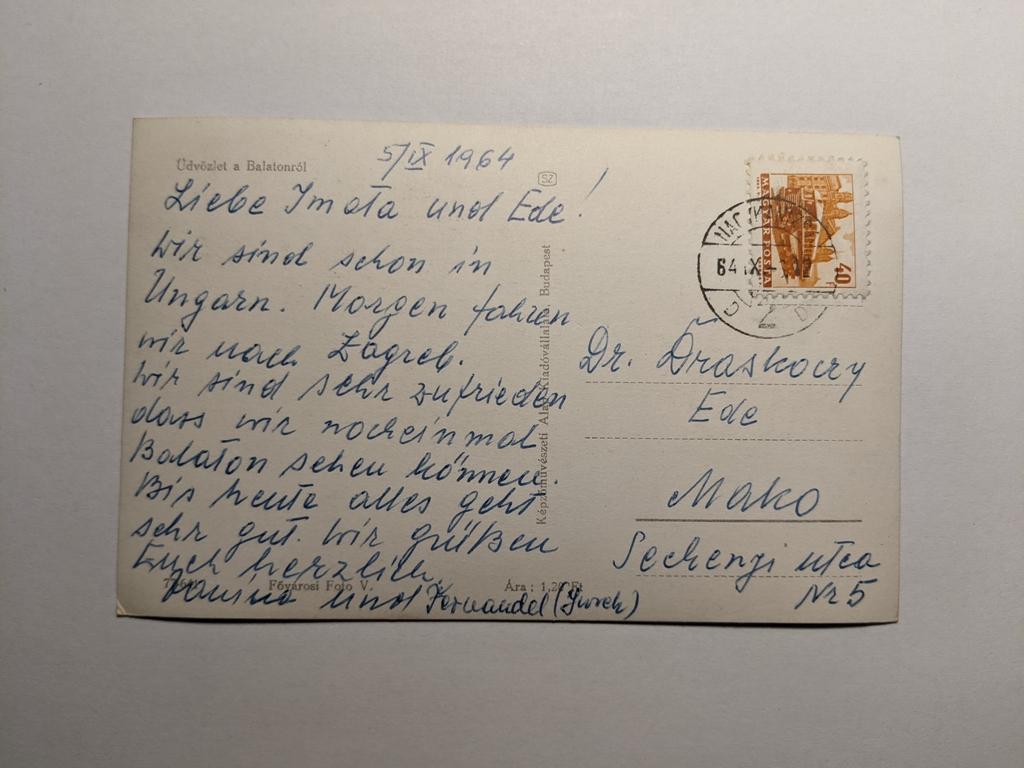 Üdvözlet a Balatonról
5/IX 1964
SZ
Liebe Imota und Ede!
Wir sind schon in
Ungarn. Morgen fahren
wir nach Zagreb.
Wir sind sehr zufrieden
dass wir nocheinmal
Balaton sehen können.
Bis heute alles geht
sehr gut. Wir grüßen
Euch herzlich.
und Fernandel (Jurek)
Fővárosi Fotó V.
Ára: 1,20 Ft
Képzőművészeti Alap Kiadóvállalata Budapest
MAGYAR POSTA
40
64 IX
Dr. Draskoczy
Ede
Mako
Sechenyi utca
Nr 5